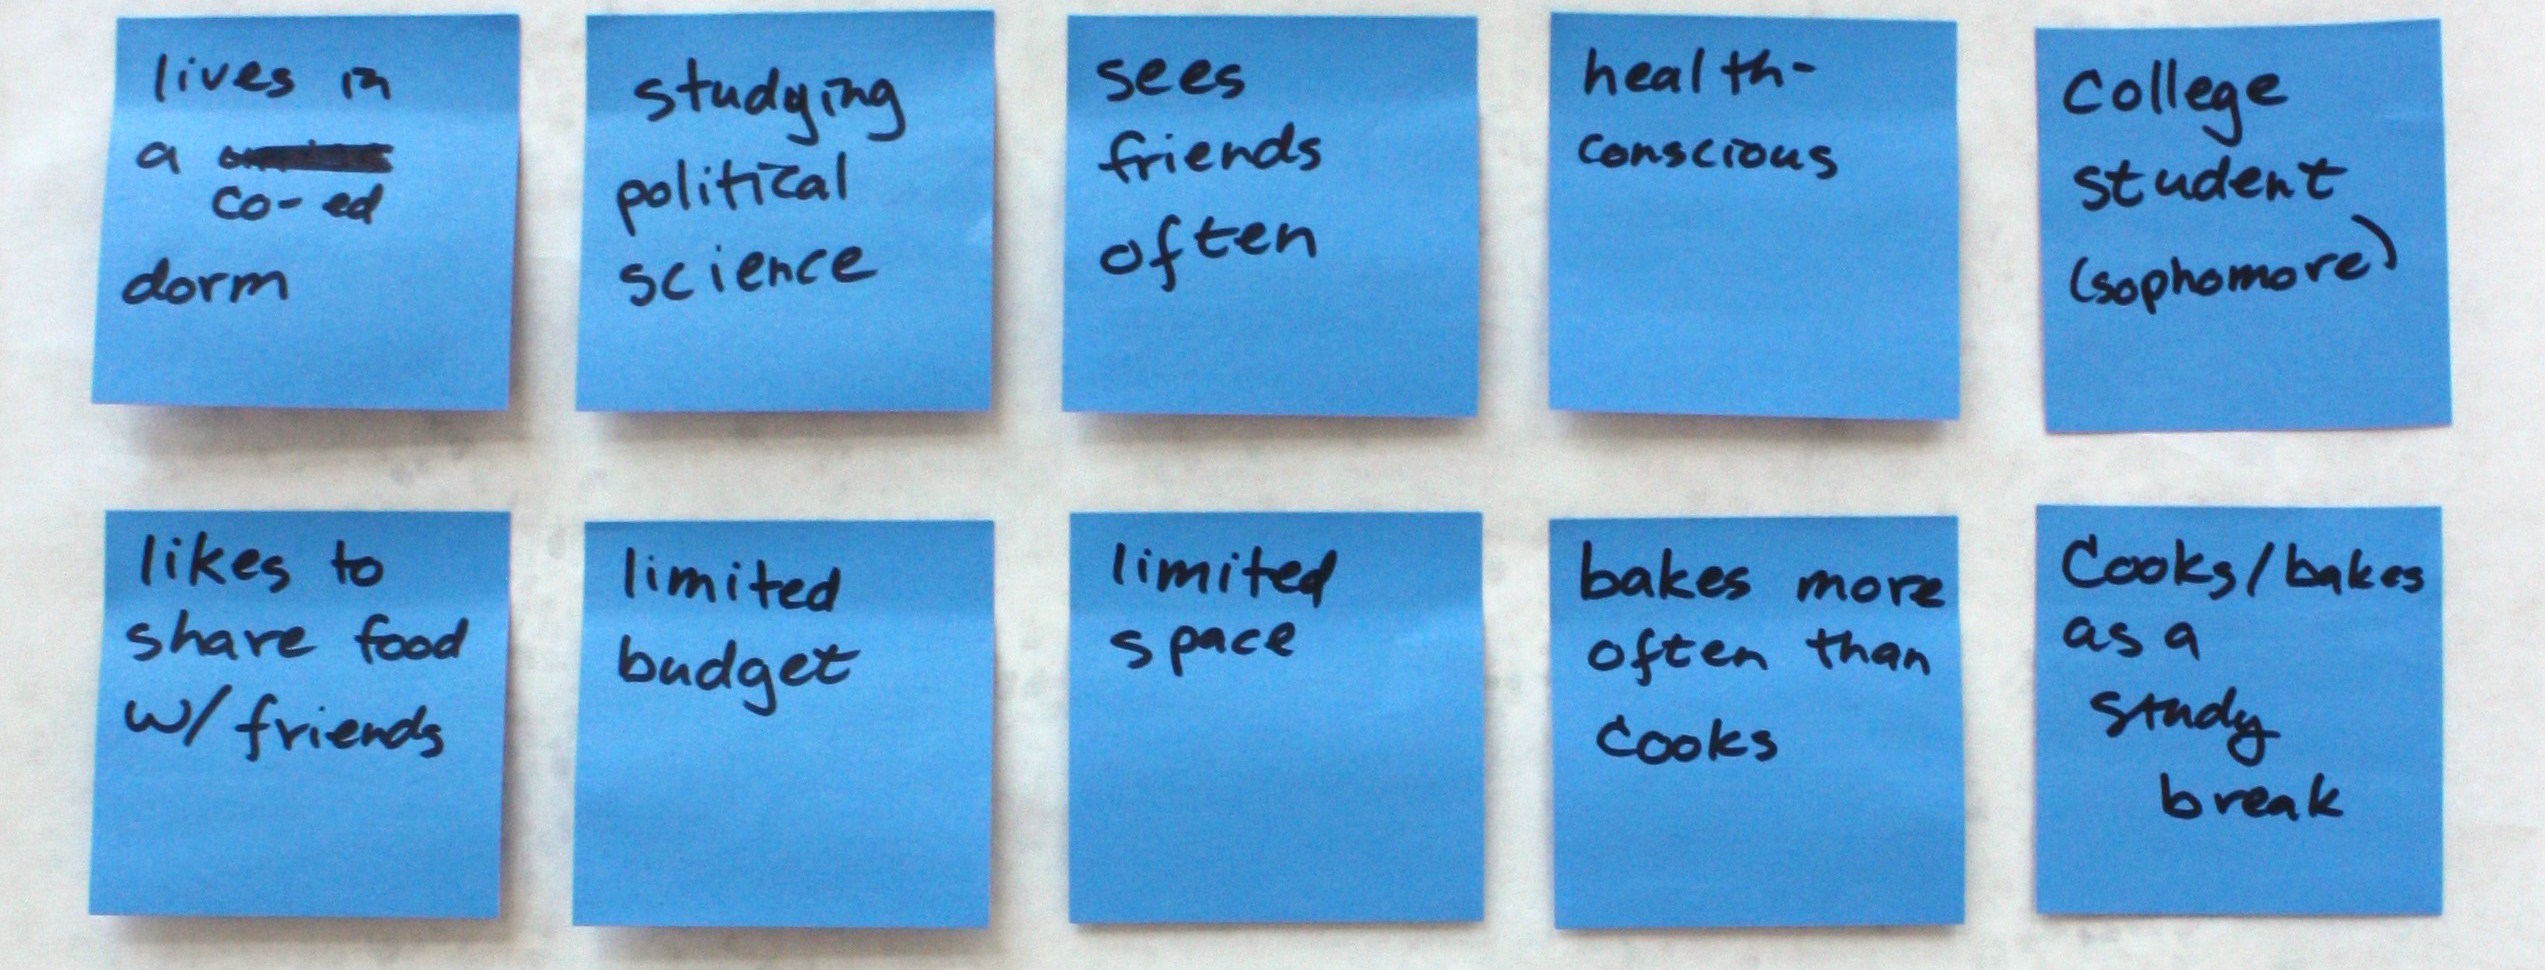 lives in
a
co-ed
dorm
studying
political
science
sees
friends
often
health-
conscious
College
student
(sophomore)
likes to
share food
w/ friends
limited
budget
limited
space
bakes more
often than
cooks
Cooks/bakes
as a
study
break